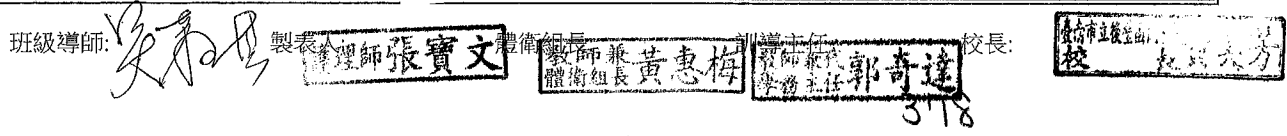 班級導師: 製表人 護理師張寶文 體衛組長 教師兼體衛組長黃惠梅 訓導主任 教師兼代學務主任郭奇達 校長:
3/18